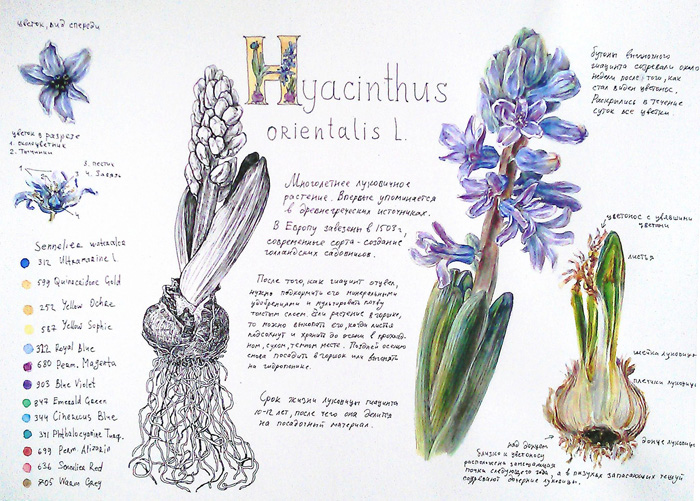 цветок, вид спереди
цветок в разрезе
1. околоцветник
2. тычинки
3. пестик
4. завязь
Sennelier watercolor
312 Ultramarine L.
599 Quinacridone Gold
252 Yellow Ochre
587 Yellow Sophie
322 Royal Blue
680 Perm. Magenta
903 Blue Violet
847 Emerald Green
344 Cinereous Blue
341 Phthalocyanine Turq.
699 Perm Alizarin
636 Sennelier Red
705 Warm Grey
Hyacinthus
orientalis L.
Многолетнее луковичное
растение. Впервые упоминается
в древнегреческих источниках.
В Европу завезены в
современные сорта - создание
голландских садовников.
После того, как гиацинт отцвел,
нужно подкормить его минеральными
удобрениями и мульчировать почву
толстым слоем. Если растение в горшке,
то можно выкопать его, когда листья
подсохнут и хранить до осени в прохлад-
ном, сухом, темном месте. Поздней осенью
снова посадить в горшок или выгонять
на гидропонике.
Срок жизни луковицы гиацинта
10-12 лет, после чего она делится
на посадочный материал.
бутоны
гиацинта созревали около
недели после того, как
стал виден цветонос.
Раскрылись в течение
суток все цветки.
цветонос с увядшими
цветами
листья
шейка луковицы
луковицы
донце луковицы
над донцем
близко к цветоносу
расположена замещающая
почка следующего года, а в пазухах запасающих чешуй
созревают дочерние луковицы.